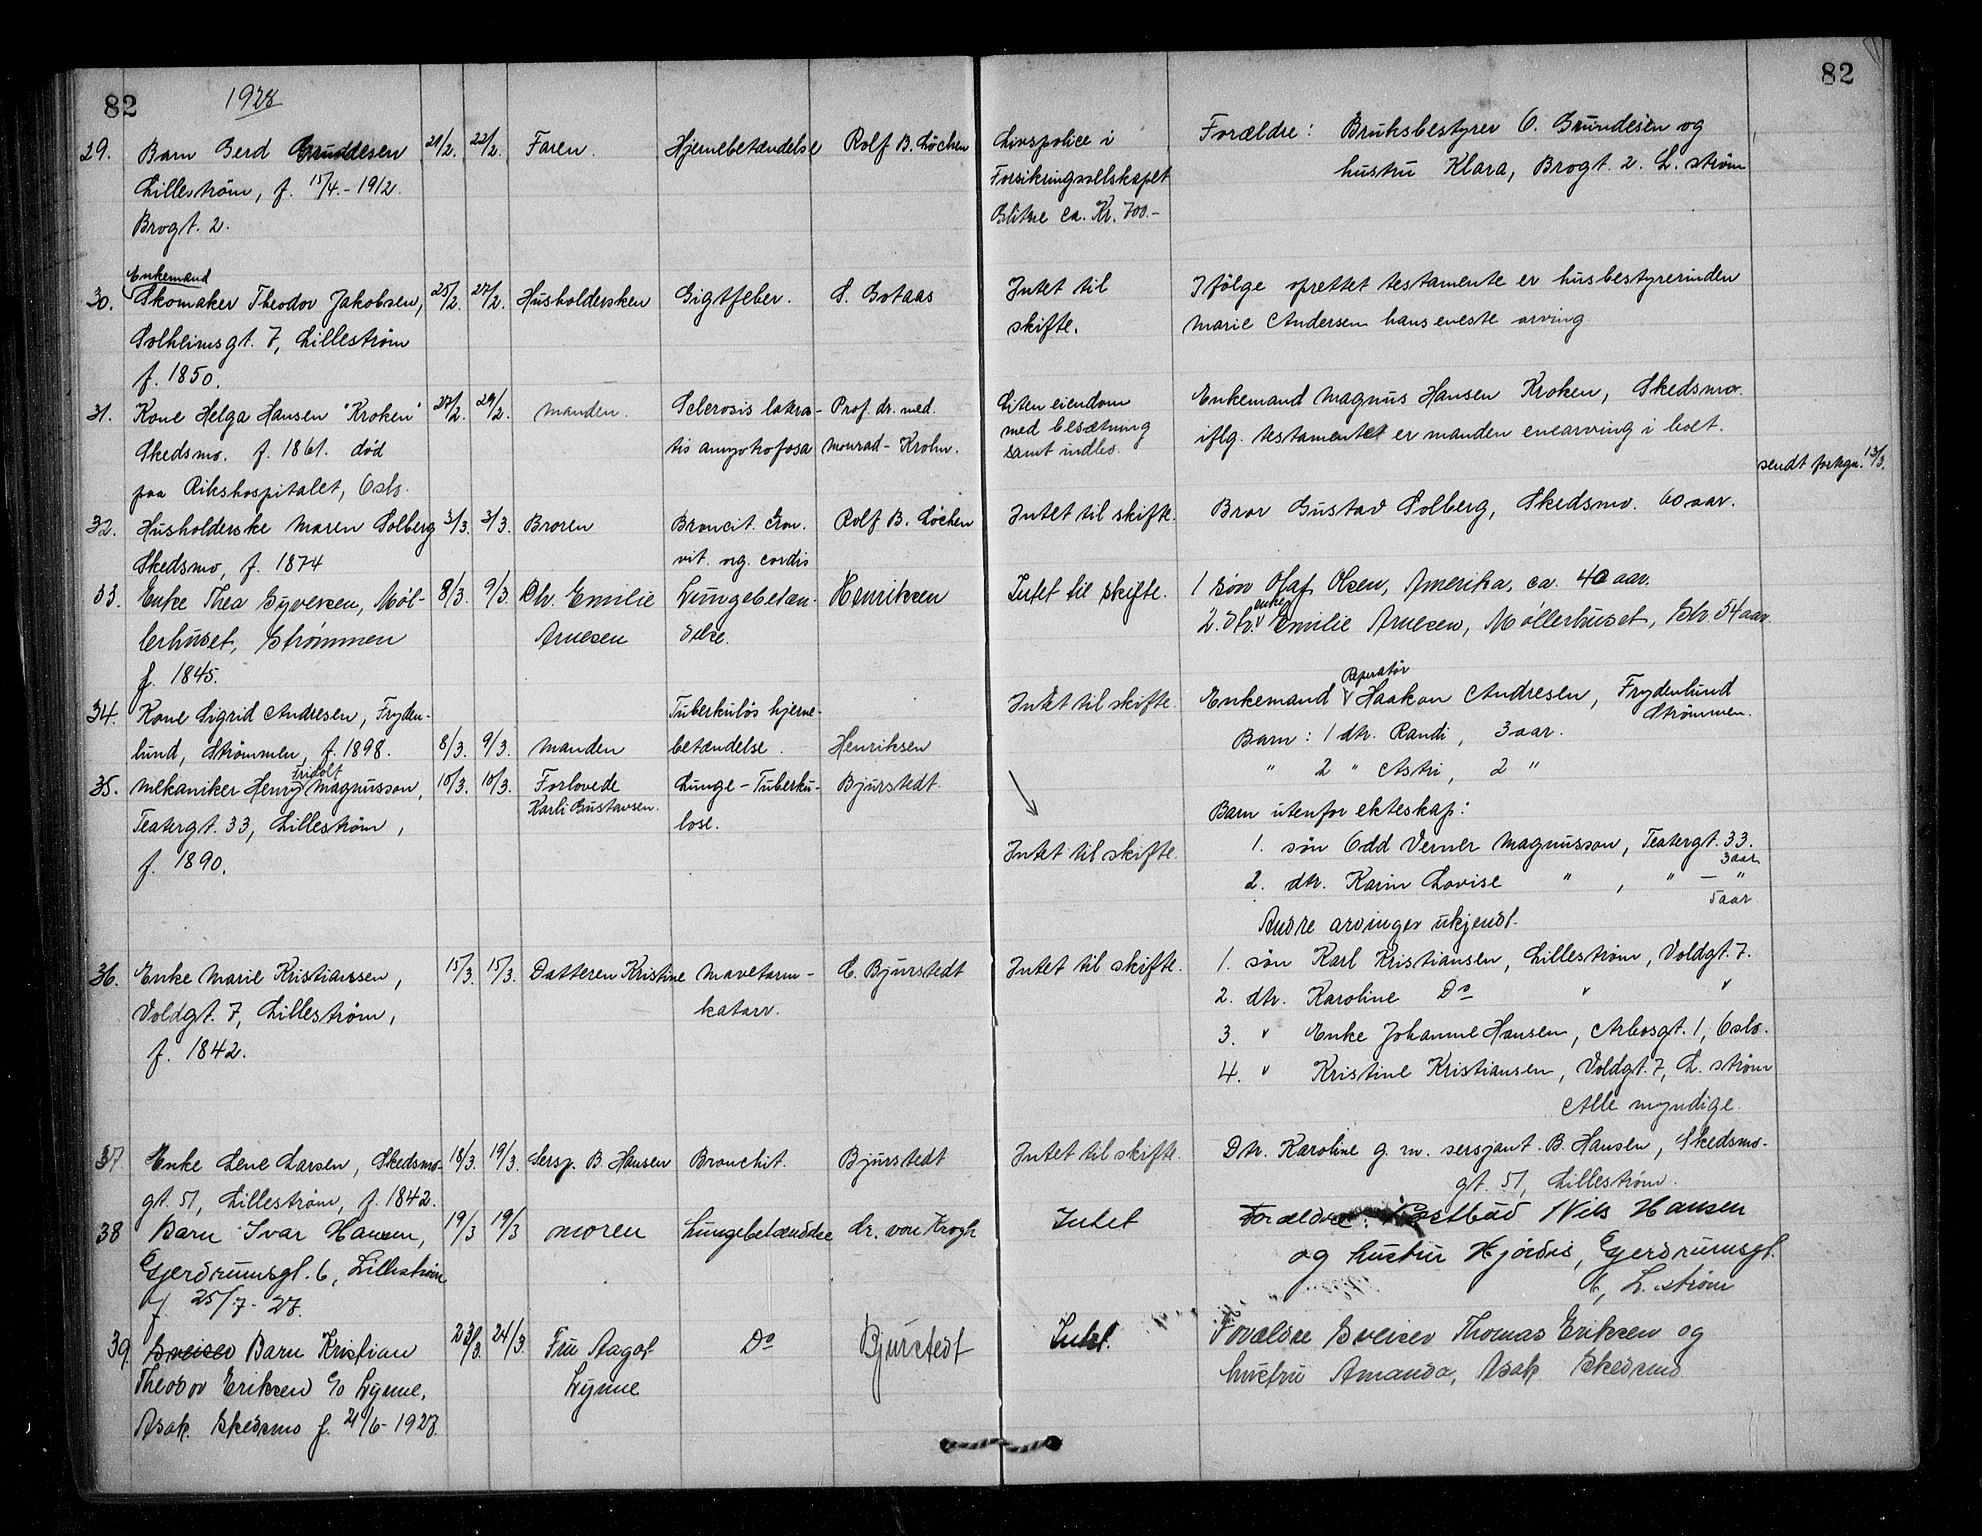 82 1928 82
29. Barn Gerd Grundesen 21/2. 22/2. Faren. Hjernebetændelse Rolf B. Løchen Livspolice i Forældre: Bruksbestyrer O. Grundesen og
Lillestrøm, f. 15/4.-1912. Forsikringsselskapet hustru Klara, Brogt. 2. L. strøm
Brogt. 2. Glitne ca. Kr. 700.-
Enkemand
30. Skomaker Theodor Jakobsen, 25/2. 27/2. Husholdersken Gigtfeber. S. Gotaas Intet til Ifølge oprettet testamente er husbestyrerinden
Solheimsgt. 7, Lillestrøm skifte. Marie Andersen hans eneste arving.
f. 1850.
31. Kone Helga Hansen "Kroken" 27/2. 29/2. Manden. Sclerosis latera- Prof. dr. med. Liten eiendom Enkemand Magnus Hansen Kroken, Skedsmo.
Skedsmo. f. 1861. død tis amyotrofosa Monrad-Krohn. med besætning iflg. testamentet er manden enearving i boet.
paa Rikshospitalet, Oslo. samt indbo. sendt 13/3.
32. Husholderske Maren Solberg 3/3. 3/3. Broren Broncit. Cron. Rolf B. Løchen Intet til skifte. Bror Gustav Solberg, Skedsmo. 60 aar.
Skedsmo, f. 1874 vit. org. cordis
33. Enke Thea Syversen, Møl- 8/3. 9/3. Dtr. Emilie Lungebetæn- Henriksen Intet til skifte. 1 søn Olaf Olsen, Amerika, ca. 40 aar.
lerhuset, Strømmen Arnesen delse. 2. dtr. enke Emilie Arnesen, Møllerhuset, Str. 54 aar.
f. 1845.
34. Kone Sigrid Andresen, Fryden- Tuberkuløs hjerne- Intet til skifte. Enkemand Reperatør Haakon Andresen, Frydenlund
lund, Strømmen, f. 1898. 8/3. 9/3. Manden betændelse. Henriksen Barn: 1 dtr. Randi, 3 aar. Strømmen.
" 2 " Astri, 2 "
35. Mekaniker Henry Fridolf Magnusson, 10/3. 10/3. Forlovede Lunge-Tuberku- Bjurstedt. Barn utenfor ekteskap:
Teatergt. 33, Lillestrøm, Karli Gustavsen. lose. 1. søn Odd Verner Magnusson, Teatergt. 33.
f. 1890. Intet til skifte. 3 aar
2. dtr. Karin Lovise " , " — "
5 aar.
Andre arvinger ukjendt.
36. Enke Marie Kristiansen, 15/3. 15/3. Datteren Kristine Mavetarm- C. Bjurstedt Intet til skifte. 1. søn Karl Kristiansen, Lillestrøm, Voldgt. 7.
Voldgt. 7, Lillestrøm, katarr. 2. dtr. Karoline Do " "
f. 1842. 3. " Enke Johanne Hansen, Arbosgt. 1, Oslo.
4. " Kristine Kristiansen, Voldgt. 7, L. strøm
Alle myndige.
37. Enke Lene Larsen, Skedsmo- 18/3. 19/3. Sersj. B. Hansen Bronchit. Bjurstedt Intet til skifte. Dtr. Karoline g. m. sersjant B. Hansen, Skedsmo-
gt. 51, Lillestrøm, f. 1842. gt. 51, Lillestrøm.
38 Barn Ivar Hansen, 19/3 19/3 moren Lungebetændelse dr. von Krogh Intet Forældre: Postbud Nils Hansen
Gjerdrumsgt. 6, Lillestrøm og hustru Hjørdis, Gjerdrumsgt.
f. 25/7-27. 6, L. strøm
39. Sveiser Barn Kristian 23/3. 24/3. Fru Aagot Do Bjurstedt Intet. Forældre Sveiser Thomas Eriksen og
Theodor Eriksen c/o Lynne, Lynne hustru Amanda, Asak Skedsmo
Asak Skedsmo f. 21/6-1927.